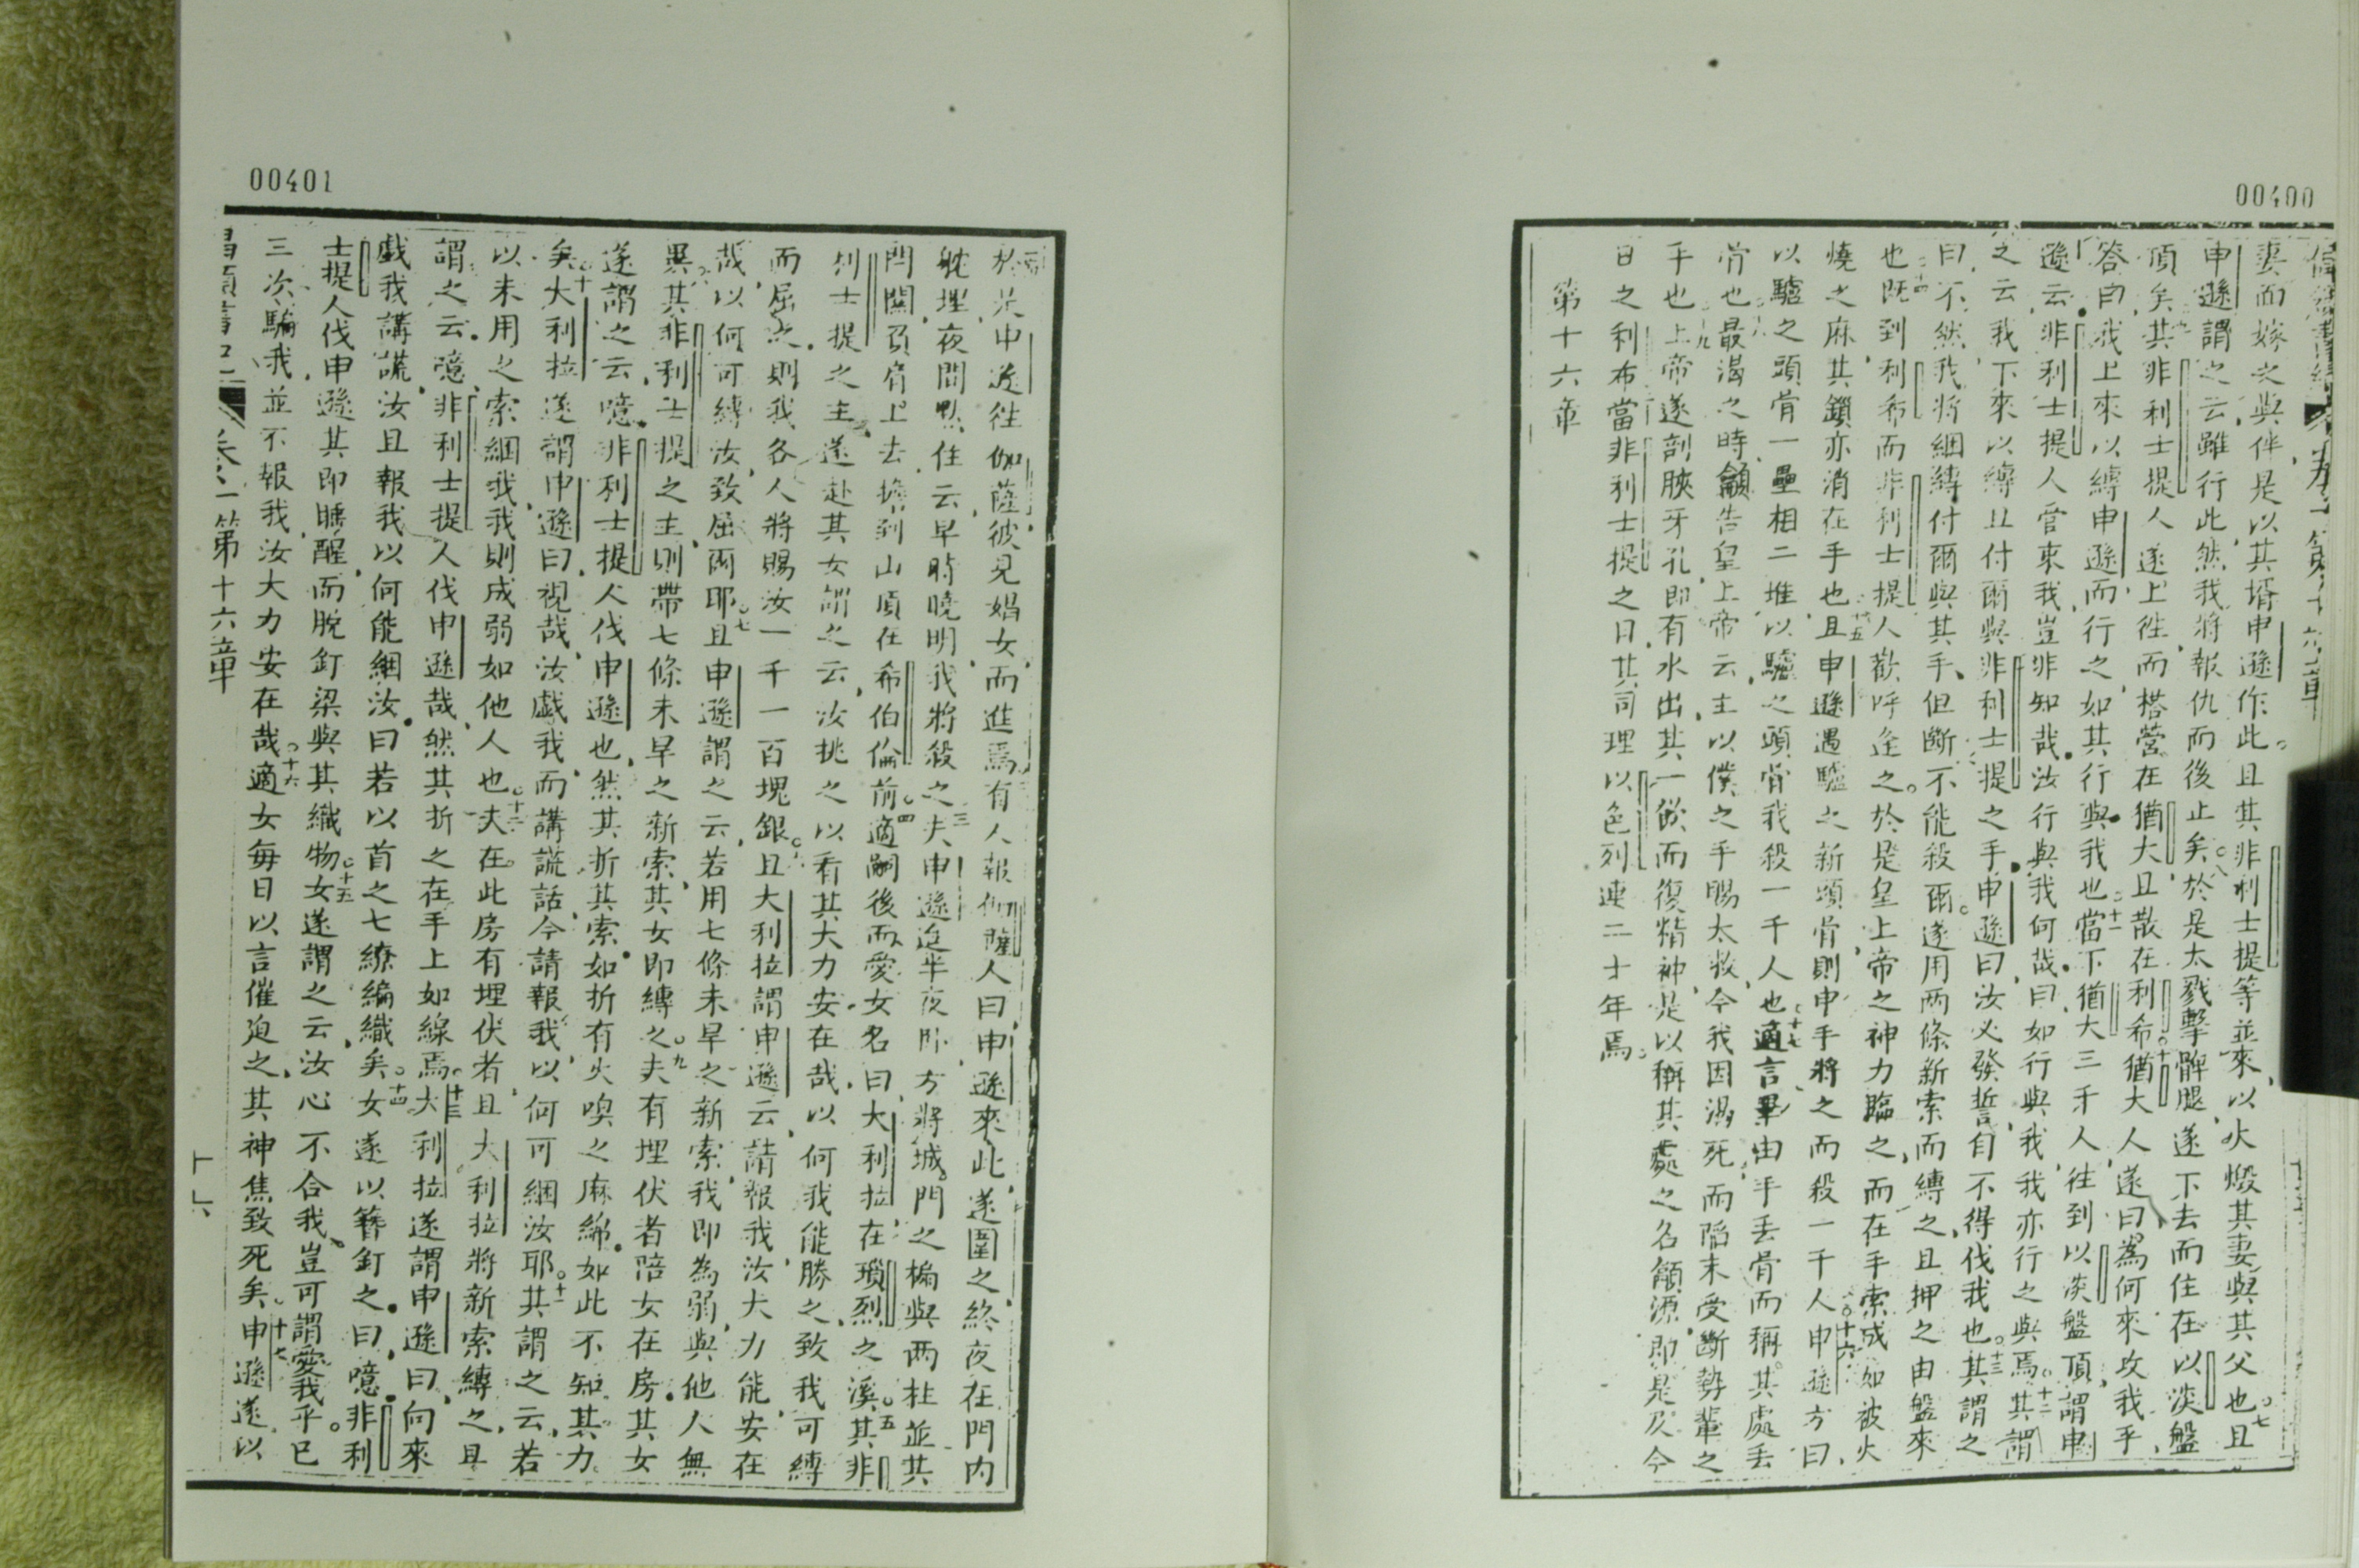 00400
妻而嫁之與伴是以其壻申遜作此且其非利士提等並來以火燬其妻與其父也七且
申遜謂之云雖行此然我將報仇而後止矣八於是太戮擊髀腿遂下去而住在以淡盤
頂矣九其非利士提人遂上徃而搭營在猶大且散在利希十猶大人遂曰為何來攻我乎
答曰我上來以縛申遜而行之如其行與我也十一當下猶大三千人徃到以淡盤頂謂申
遜云非利士提人管束我豈非知哉汝行與我何哉曰如行與我我亦行之與焉十二其謂
之云我下來以縛且付爾與非利士提之手申遜曰汝必發誓自不得伐我也十三其謂之
曰不然我將綑縛付爾與其手但斷不能殺爾遂用两條新索而縛之且押之由盤來
也十四既到利希而非利士提人歡呼迕之於是皇上帝之神力臨之而在手索成如被火
燒之麻其鎖亦消在手也十五且申遜遇驢之新頭骨則申手將之而殺一千人十六申遜方曰
以驢之頭骨一壘相二堆以驢之頭骨我殺一千人也十七適言畢由手丢骨而稱其處丢
骨也十八最渴之時籲告皇上帝云主以僕之手賜太救今我因渴死而陷未受斷勢輩之
手也十九上帝遂剖腴牙孔即有水出其一飲而復精神是以稱其處之名籲源即是及今
日之利布當非利士提之日其司理以色列連二十年焉
第十六章
00401
於是申遜徃伽薩彼見娼女而進焉二有人報伽薩人曰申遜來此遂圍之終夜在門内
躭埋夜間默住云早時曉明我將殺之三夫申遜迨半夜卧方將城門之楄與两柱並其
閂關負肩上去擔到山頂在希伯倫前四適嗣後而愛女名曰大利拉在瑣烈之溪五其非
利士提之主遂赴其女謂之云汝挑之以看其大力安在哉以何我能勝之致我可縛
而屈之則我各人將賜汝一千一百塊銀六且大利拉謂申遜云請報我汝大力能安在
哉以何可縛汝致屈爾耶七且申遜謂之云若用七條未早之新索我即為弱與他人無
異八其非利士提之主則帶七條未早之新索其女即縛之九夫有埋伏者陪女在房其女
遂謂之云噫非利士提人伐申遜也然其折其索如折有火嗅之麻綿如此不知其力
矣十大利拉遂謂申遜曰視哉汝戯我而講謊話今請報我以何可綑汝耶十一其謂之云若
以未用之索綑我我則成弱如他人也十二夫在此房有埋伏者且大利拉將新索縛之且
謂之云噫非利士提人伐申遜哉然其折之在手上如線焉十三大利拉遂謂申遜曰向來
戯我講謊汝且報我以何能綑汝曰若以首之七繚編織矣十四女遂以簪釘之曰噫非利
士提人伐申遜其即睡醒而脫釘梁與其織物十五女遂謂之云汝心不合我豈可謂愛我乎已
三次騙我並不報我汝大力安在哉十六適女每日以言催廹之其神焦致死矣十七申遜遂以
卷一第十六章